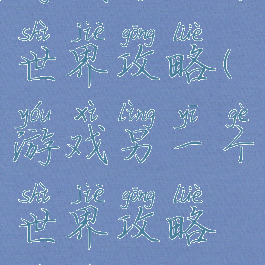 shì jiè gōng lüè
世界攻略(
yóu xì lìng yī gè
游戏男一个
shì jiè gōng lüè
世界攻略